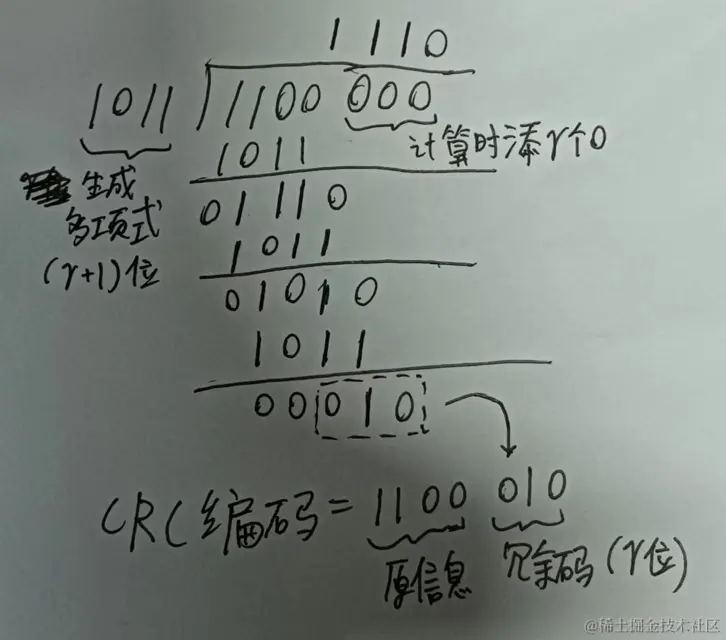 1110
1011 1100 000
计算时添r个0
1011
生成
多项式
(r+1)位
01110
1011
01010
1011
00010
CRC编码=1100 010
原信息 冗余码(r位)
@稀土掘金技术社区